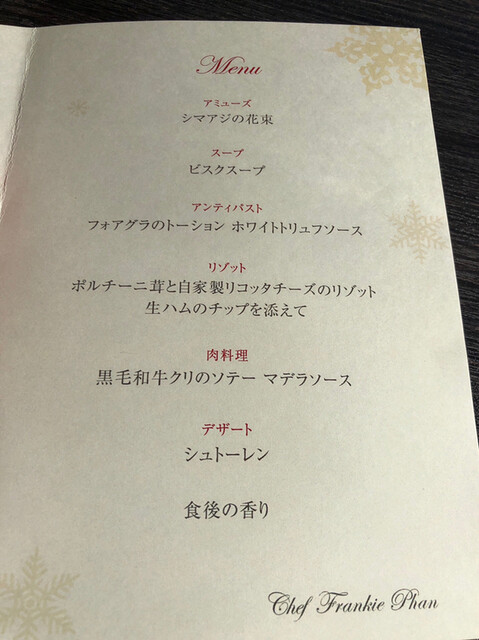 Menu
アミューズ
シマアジの花束
スープ
ビスクスープ
アンティパスト
フォアグラのトーション ホワイトトリュフソース
リゾット
ポルチーニ茸と自家製リコッタチーズのリゾット
生ハムのチップを添えて
肉料理
黒毛和牛クリのソテー マデラソース
デザート
シュトーレン
食後の香り
Chef Frankie Phan